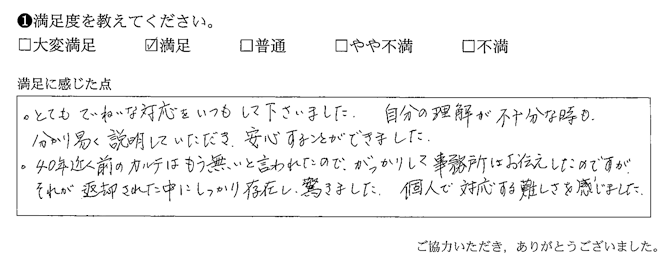 ❶満足度を教えてください。
□大変満足 ☑満足 □普通 □やや不満 □不満
満足に感じた点
。とても ていねいな対応をいつも して下さいました. 自分の理解が不十分な時も.
分かり易く説明していただき、安心することができました.
。40年近く前のカルテはもう無いと言われたので、がっかりして事務所はお伝えしたのですが
それが返却された中にしっかり存在し、驚きました. 個人で対応する難しさを感じました.
ご協力いただき，ありがとうございました。